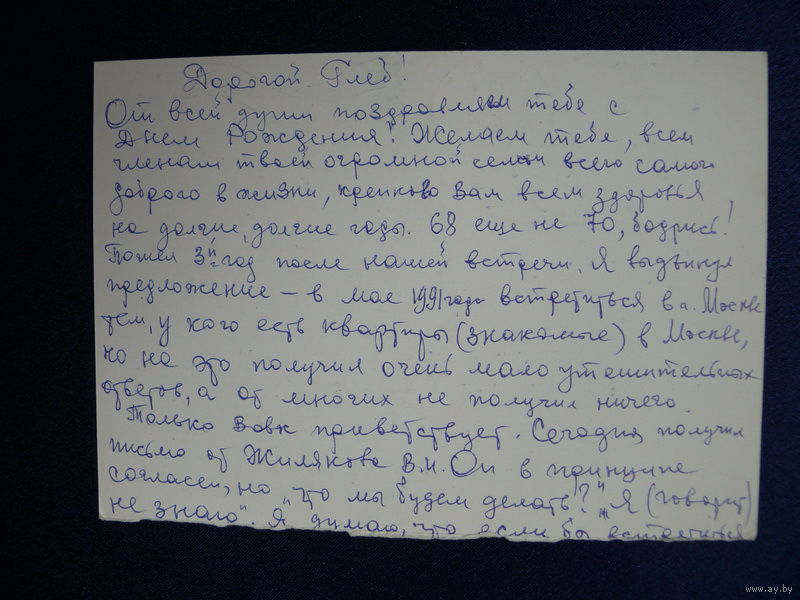 Дорогой Глеб!
От всей души поздравляем тебя с
Днем Рождения! Желаем тебе, всем
членам твоей огромной семьи всего самого
доброго в жизни, крепкого Вам всем здоровья
на долгие, долгие годы. 68 еще не 70, бодрись!
Пошел 3й год после нашей встречи. Я выдвинул
предложение – в мае 1991 года встретиться в г. Москве
тем, у кого есть квартиры (знакомые) в Москве,
но на это получил очень мало утешительных
ответов, а от многих не получил ничего.
Только Вовк приветствует. Сегодня получил
письмо от Жилякова В.И. Он в принципе
согласен, но "что мы будем делать?" "Я (говорит)
не знаю". Я думаю, что если бы встретиться
www.ay.by